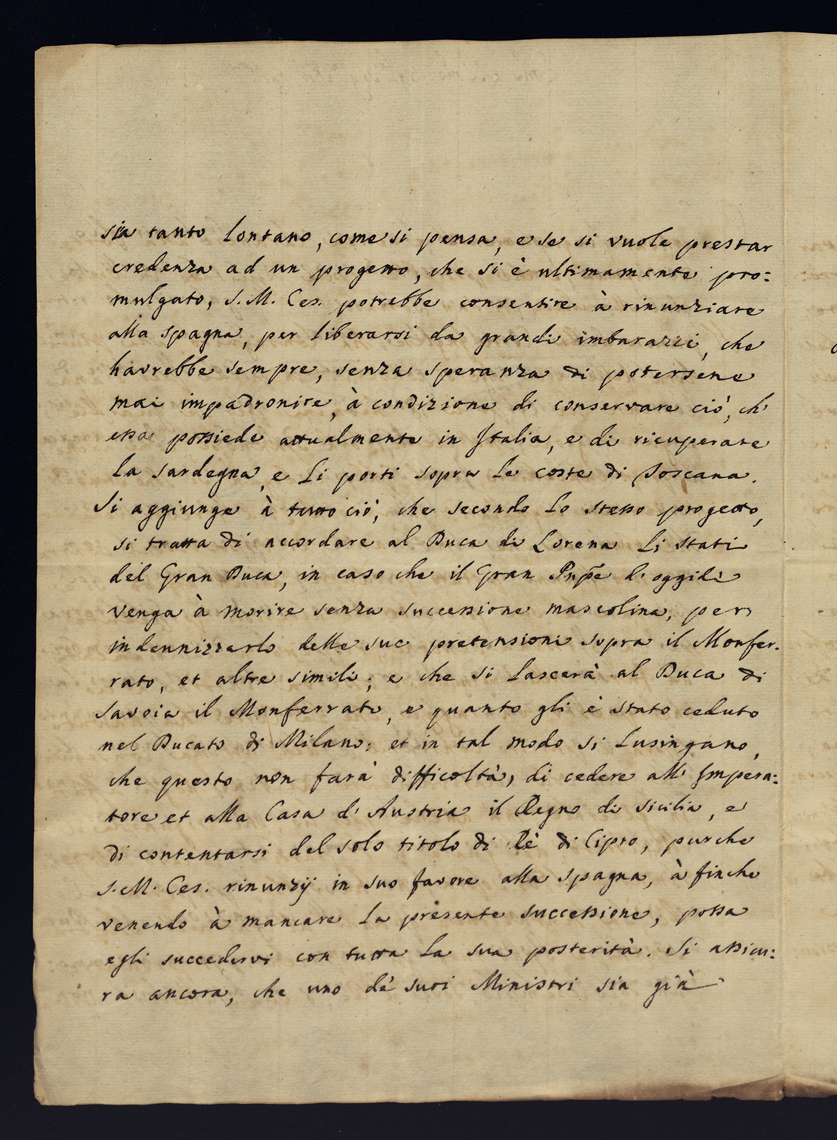 sia tanto lontano, come si pensa, e se si vuole prestar
credenza ad un progetto, che si è ultimamente pro:
mulgato, S. M. Ces. potrebbe consentire à rinunziare
alla Spagna, per liberarsi da grandi imbarazzi, che
havrebbe sempre, senza speranza di potersene
mai impadronire, à condizione di conservare ciò, ch'
essa possiede attualmente in Italia, e di ricuperare
la Sardegna, e li porti sopra le coste di Toscana.
Si aggiunge à tutto ciò, che secondo lo stesso progetto,
si tratta di accordare al Duca di Lorena li stati
del Gran Duca, in caso che il Gran Pnpe d'oggidì
venga à morire senza successione mascolina, per
indennizzarlo delle sue pretensioni sopra il Monfer-
rato, et altre simili; e che si lascerà al Duca di
Savoia il Monferrato, e quanto gli è stato ceduto
nel Ducato di Milano; et in tal modo si lusingano,
che questo non farà difficoltà, di cedere all' Impera:
tore et alla Casa d'Austria il Regno di Sicilia, e
di contentarsi del solo titolo di Rè di Cipro, purche
S. M. Ces. rinunzij in suo favore alla Spagna, à finche
venendo à mancare la presente successione, possa
egli succedervi con tutta la sua posterità. Si assicu:
ra ancora, che uno dè suoi Ministri sia già